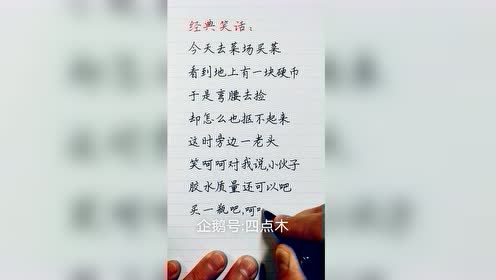 经典笑话:
今天去菜场买菜
看到地上有一块硬币
于是弯腰去捡
却怎么也抠不起来
这时旁边一老头
笑呵呵对我说,小伙子
胶水质量还可以吧
买一瓶吧,呵
企鹅号:四点木